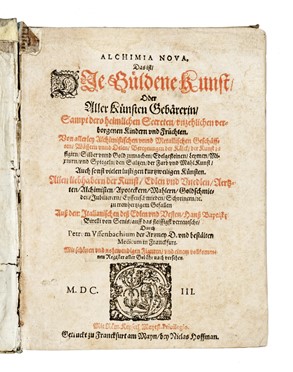 ALCHIMIA NOVA,
Das ist/
Die Güldene Kunst/
Oder
Aller Künsten Gebärerin/
Sampt dero heimlichen Secreten/ unzehlichen ver-
borgenen Kindern und Früchten.
Von allerley Alchimistischen unnd Metallischen
Wassern unnd
Silber unnd Gold zumachen/ Edelgesteinen/
der Farb und Mahl Kunst/
Auch sonst vielen lustigen kurtzweiligen Künsten.
Allen liebhabern der Kunst/ Edlen und Unedlen/ Aertz-
ten/ Alchimisten/ Apoteckern/ Mahlern/ Goldschmie-
den/ Jubilierern/
zu
Auß der Italianischen deß Edlen und Vesten/
von Senis/ auff das fleissigst verteutscht/
Durch
Petrum Uffenbachium der Artzney D. und bestälten
Medicum in Franckfurt.
Mit schönen und nohtwendigen Figuren/ und einem vollkomme-
nen Register aller versehen.
M. DC. III.
Mit Röm. Keys. Mayest. Privilegio.
Getruckt zu Franckfurt am Mayn/ bey Niclas Hoffman.